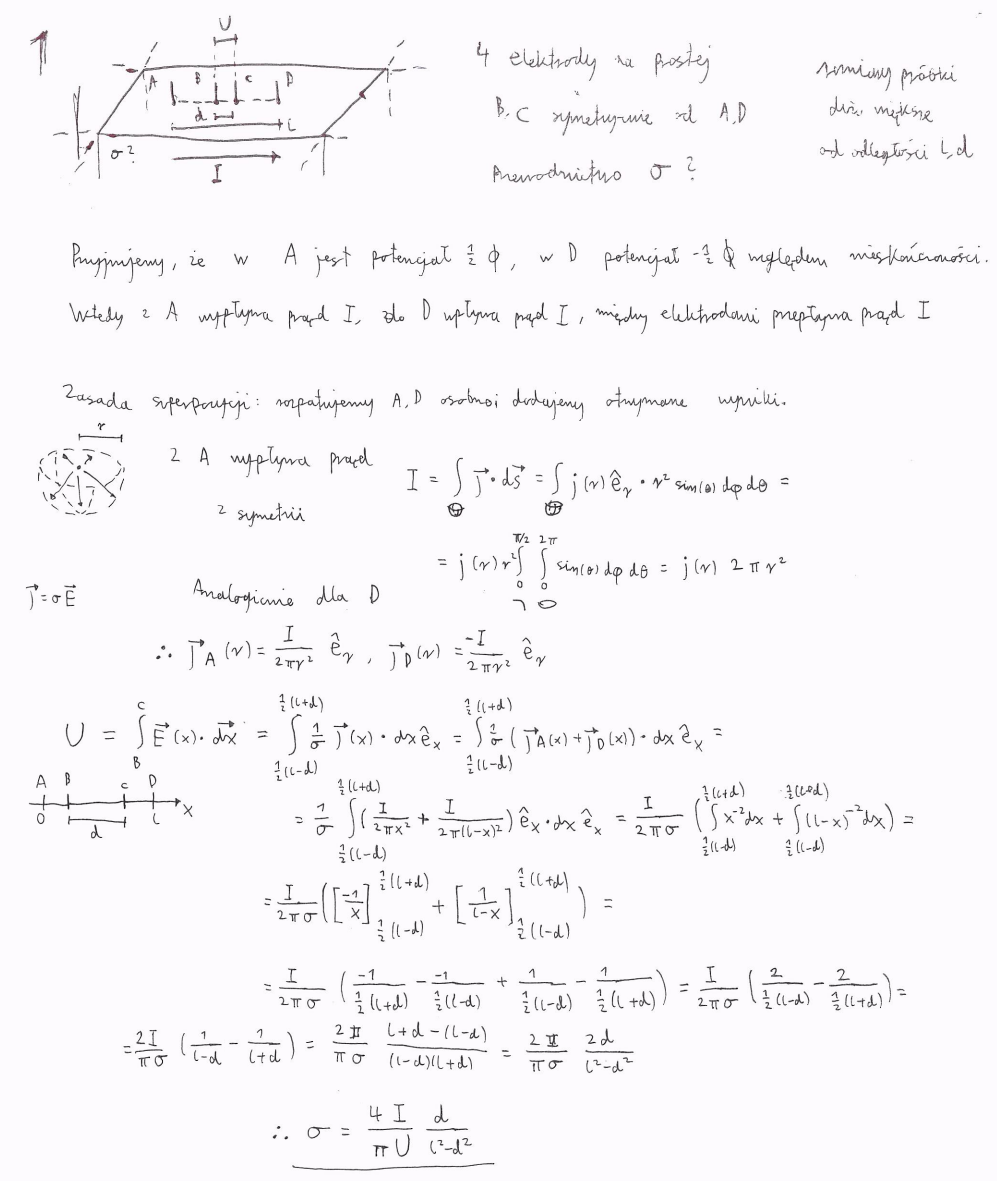 1
U
A B C D
d L
σ?
I
4 elektrody na prostej
B, C symetrycznie od A,D
Przewodnictwo σ ?
rozmiary próbki
dużo większe
od odległości L,d
Przyjmijemy, że w A jest potencjał ½ ϕ, w D potencjał -½ ϕ względem nieskończoności.
Wtedy z A wypływa prąd I, do D wpływa prąd I, między elektrodami przepływa prąd I
Zasada superpozycji: rozpatrujemy A,D osobno i dodajemy otrzymane wyniki.
r
z A wypływa prąd
z symetrii
I = ∫ j⃗ · ds⃗ = ∫ j(r) ê_r · r² sin(θ) dφ dθ =
= j(r) r² ∫₀^{π/2} ∫₀^{2π} sin(θ) dφ dθ = j(r) 2 π r²
j⃗ = σE⃗
Analogicznie dla D
∴ j⃗_A (r) = I/(2πr²) ê_r , j⃗_D (r) = -I/(2πr²) ê_r
U = ∫_B^C E⃗(x) · dx⃗ = ∫_{½(l-d)}^{½(l+d)} 1/σ j⃗(x) · dx ê_x = ∫_{½(l-d)}^{½(l+d)} 1/σ (j⃗_A(x) + j⃗_D(x)) · dx ê_x =
A B C D
0 d l x
= 1/σ ∫_{½(l-d)}^{½(l+d)} (I/(2πx²) + I/(2π(l-x)²)) ê_x · dx ê_x = I/(2πσ) (∫_{½(l-d)}^{½(l+d)} x⁻² dx + ∫_{½(l-d)}^{½(l+d)} (l-x)⁻² dx) =
= I/(2πσ) ([-1/x]_{½(l-d)}^{½(l+d)} + [1/(l-x)]_{½(l-d)}^{½(l+d)}) =
= I/(2πσ) (-1/(½(l+d)) - -1/(½(l-d)) + 1/(½(l-d)) - 1/(½(l+d))) = I/(2πσ) (2/(½(l-d)) - 2/(½(l+d))) =
= 2I/(πσ) (1/(l-d) - 1/(l+d)) = 2I/(πσ) (l+d-(l-d))/((l-d)(l+d)) = 2I/(πσ) 2d/(l²-d²)
∴ σ = 4 I/(π U) d/(l²-d²)